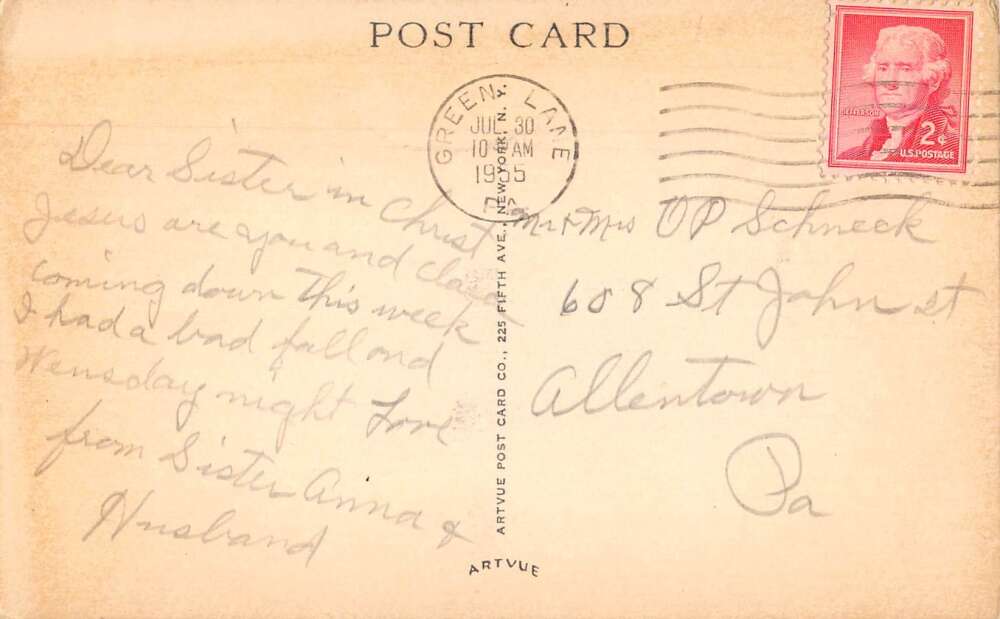 POST CARD
GREEN LANE
JUL 30
10 AM
1955
PA
JEFFERSON
2¢
U.S. POSTAGE
Dear Sister in Christ
Jesus are you and Clara
coming down this week
I had a bad fall ond
Wensday night Love
from Sister Anna &
Husband
ARTVUE POST CARD CO., 225 FIFTH AVE., NEW YORK, N. Y.
ARTVUE
Mr & Mrs O P Schneck
608 St John st
Allentown
Pa